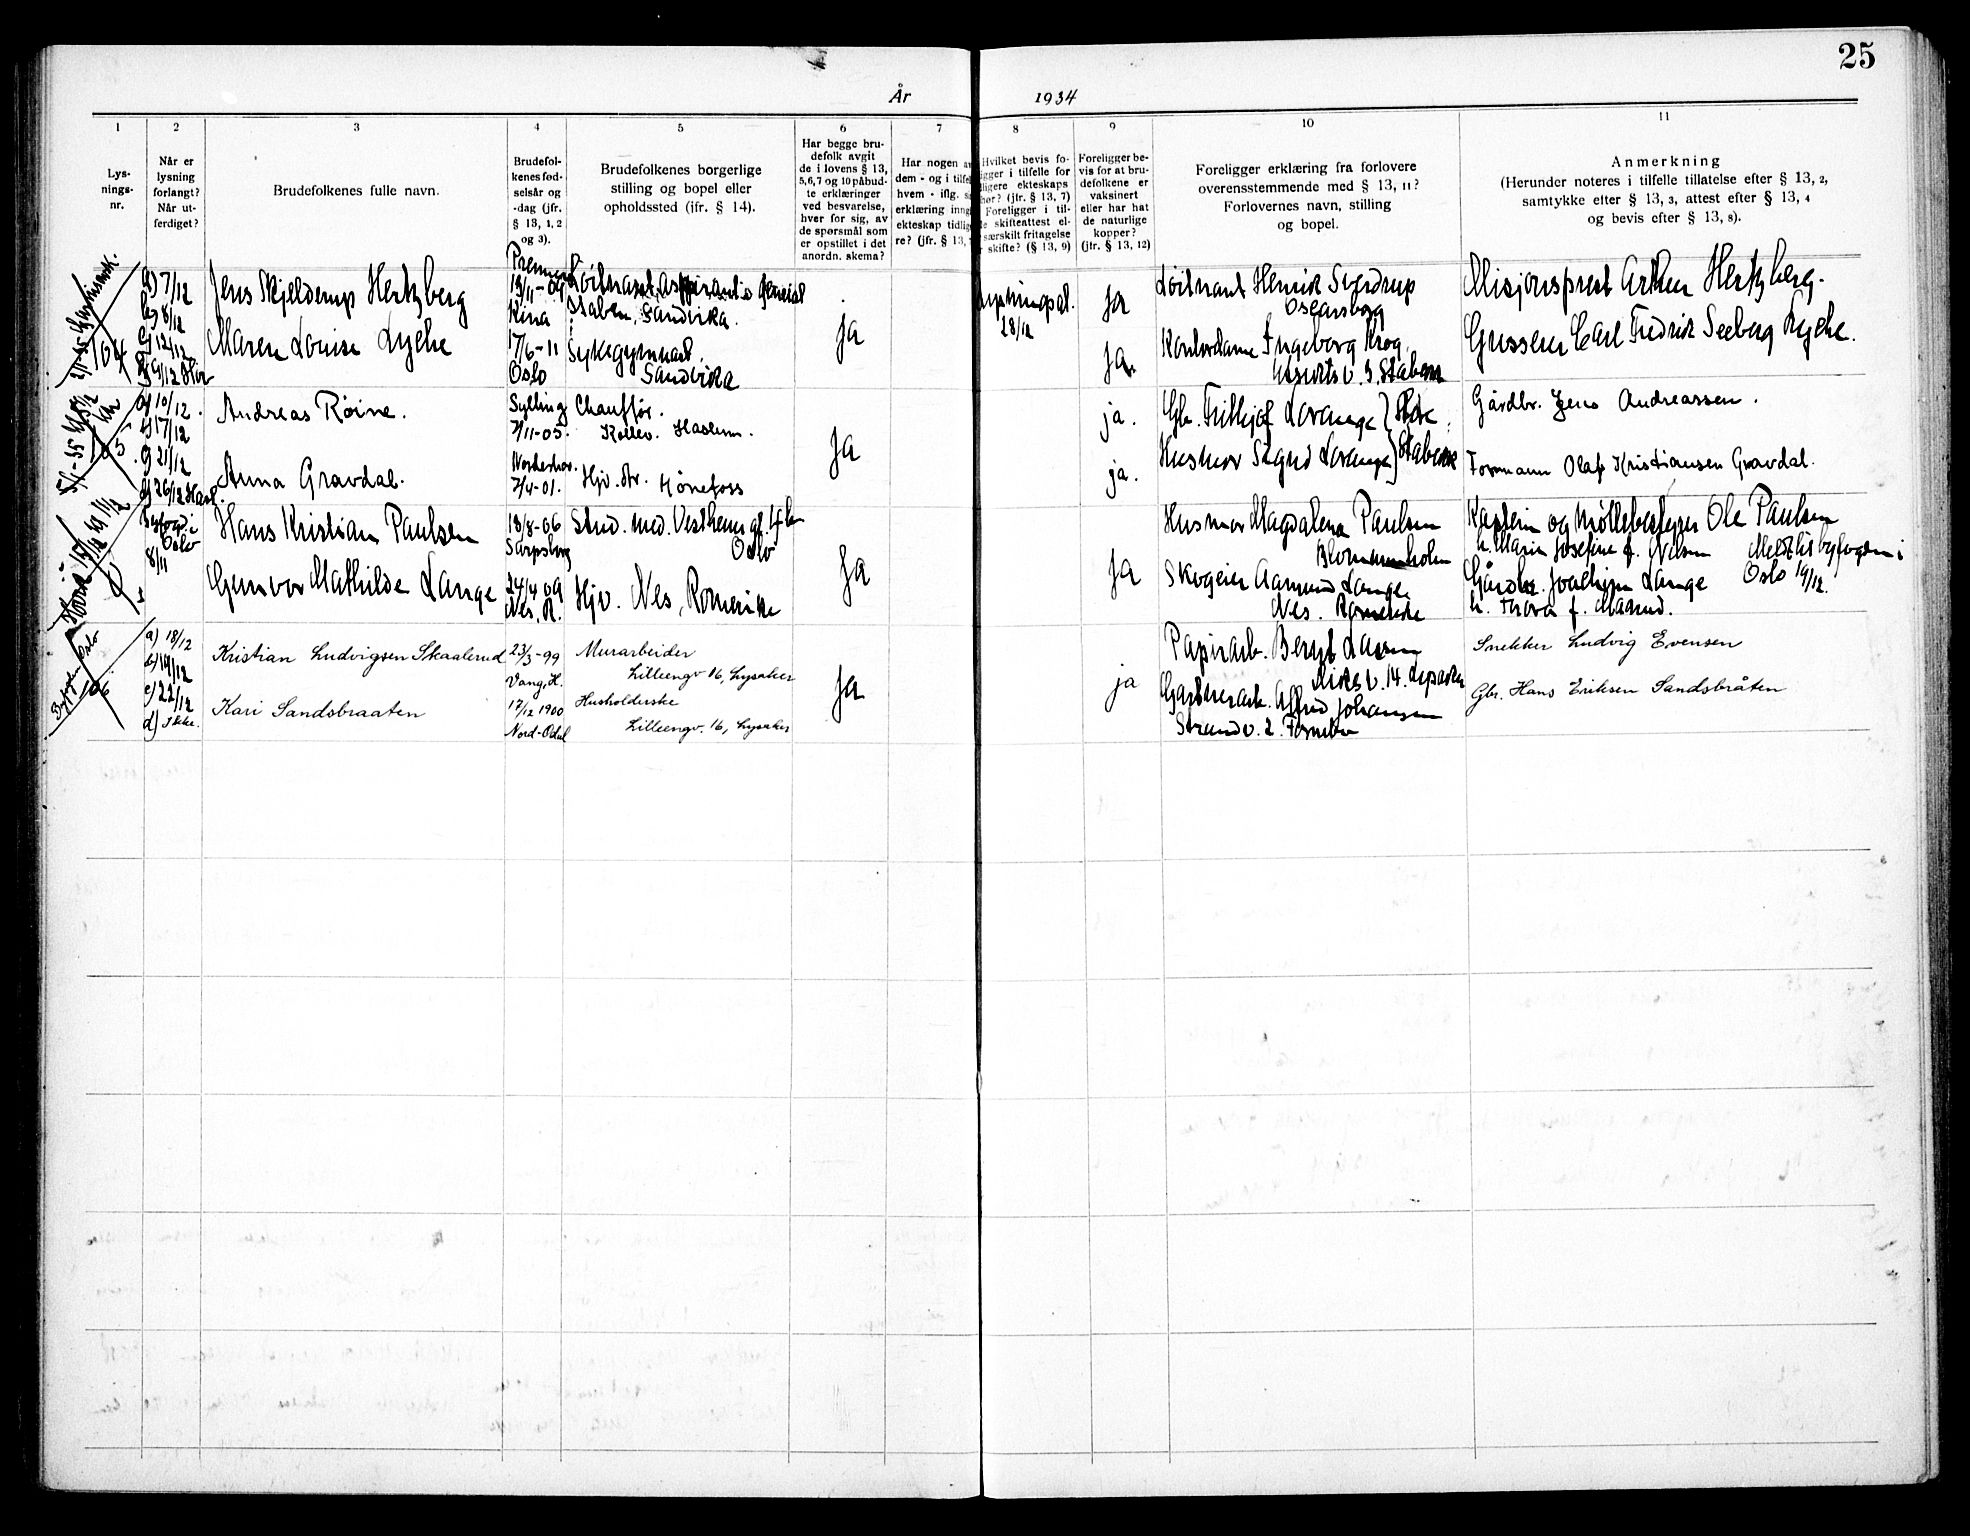 25
År 1934
1 2 3 4 5 6 7 8 9 10 11
Lys-
nings-
nr.
Når er
lysning
forlangt?
Når ut-
ferdiget?
Brudefolkenes fulle navn.
Brudefol-
kenes fød-
selsår og
-dag (jfr.
§ 13, 1, 2
og 3).
Brudefolkenes borgerlige
stilling og bopel eller
opholdssted (ifr. § 14).
Har begge bru-
defolk avgit
de i lovens § 13,
5,6,7 og 10 påbud-
te erklæringer
ved besvarelse,
hver for sig, av
de spørsmål som
er opstillet i det
anordn. skema?
Har nogen
dem - og i
hvem - iflg.
erklæring
ekteskap
re? (jfr. § 13,
Hvilket bevis fo-
igger i tilfelle for
ligere ekteskaps
hør? (jfr. § 13, 7)
Foreligger i til-
skifteattest el-
særskilt fritagelse
skifte? (§ 13, 9)
Foreligger be-
vis for at bru-
defolkene er
vaksinert
eller har hat
de naturlige
kopper?
(jfr. § 13, 12)
Foreligger erklæring fra forlovere
overensstemmende med § 13, 11?
Forlovernes navn, stilling
og bopel.
Anmerkning
(Herunder noteres i tilfelle tillatelse efter § 13, 2,
samtykke efter § 13, 3, attest efter § 13, 4
og bevis efter § 13, 8).
104
7/12
8/12
12/12
Jens Skjelderup Hertzberg
13/11-09
Kina
Løitnant, Aspirant i General
Staben, Sandvika.
Ja
28/12
Ja
Løitnant Henrik Sverdrup
Oscarsborg
Misjonsprest Arthur Hertzberg.
Maren Louise Lyche
17/6-11
Oslo
Sykegymnast.
Sandvika
Ja.
Kontordame Ingeborg Krog
Stabekk
Grosserer Carl Fredrik Seeberg Lyche.
105
a) 10/12.
b) 17/12
c) 21/12
d) 26/12 Hasl.
Andreas Røine.
Sylling
7/11-05.
Chauffør.
Kollev. Haslum.
Ja
ja.
Gbr. Frithjof Lorange
Gårdbr. Jens Andreassen.
Anna Gravdal.
7/4-01.
Hjv. str. Hønefoss
ja.
Husmor Sigrid Lorange
Stabekk
Formann Olaf Kristiansen Gravdal.
Byfogd i
Oslo
8/11
Hans Kristian Paulsen
18/8-06
Sarpsborg
Stud. med. Vestheim gt. 4b
Oslo
Ja
Ja
Husmor Magdalena Paulsen
Blommenholm
Kaptein og møllebestyrer Ole Paulsen
h. Maria Josefine f. Nilsen
Meldt til byfogden i
Oslo 19/12.
Gunvor Mathilde Lange
24/4 09
Nes, R.
Hjv. Nes, Romerike
Skogeier Aamund Lange
Nes. Romerike
Gårdbr. Joachim Lange
h. Thora f. Aamud.
106
a) 18/12
b) 19/12
c) 22/12
d) Ikke.
Kristian Ludvigsen Skaalerud
23/3-99
Vang, H.
Murarbeider
Lilleengv 16, Lysaker
Ja
ja
Papirarb. Bernt Larsen
v. 14. Lysaker
Snekker Ludvig Evensen
Kari Sandsbraaten
17/12 1900
Nord-Odal
Husholderske
Lilleengv. 16, Lysaker
Gartnerarb. Alfred Johansen
Strandv. 2. Fornebu
Gbr. Hans Eriksen Sandsbråten